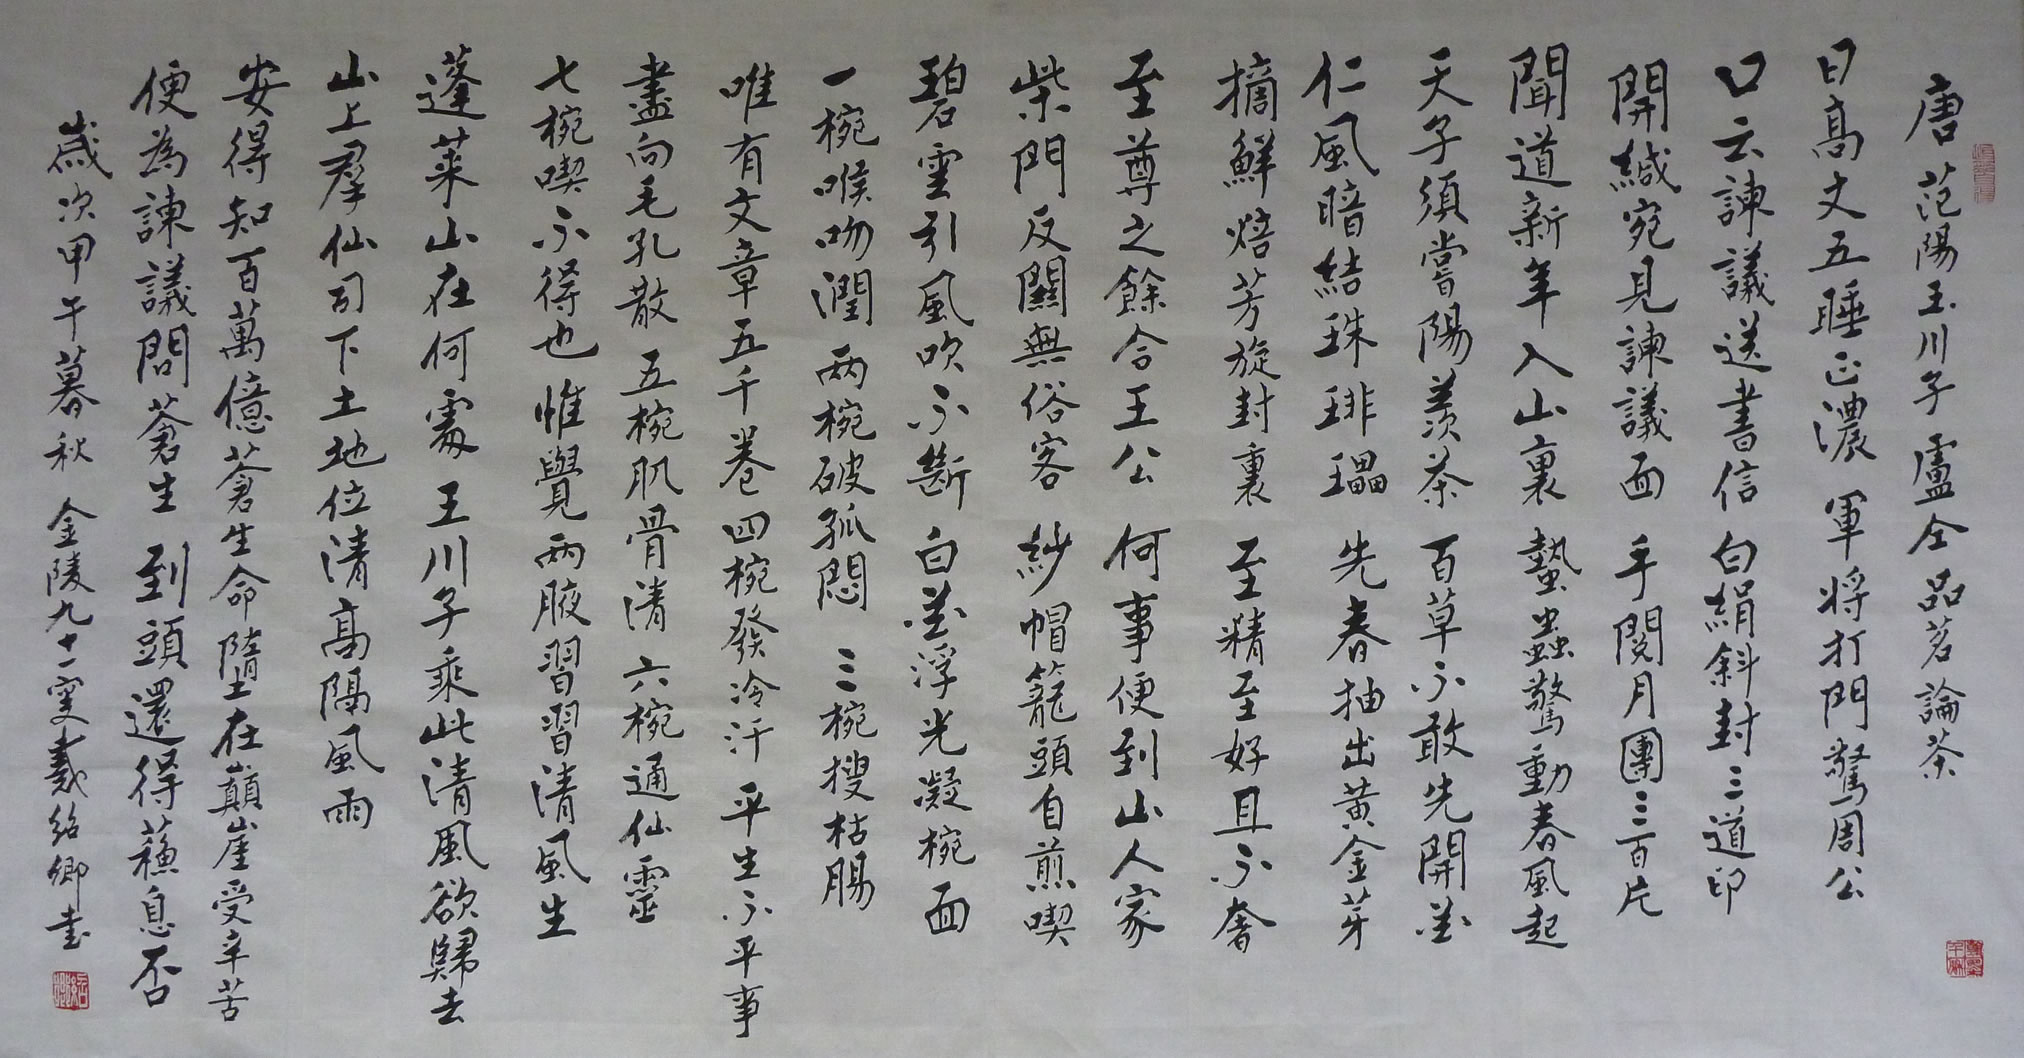 唐 范陽玉川子盧仝品茗論茶
日高丈五睡正濃 軍将打門驚周公
口云諫議送書信 白絹斜封三道印
開緘宛見諫議面 手閱月團三百片
聞道新年入山裏 蟄蟲驚動春風起
天子須嘗陽羨茶 百草不敢先開花
仁風暗結珠琲瓃 先春抽出黃金芽
摘鮮焙芳旋封裏 至精至好且不奢
至尊之餘合王公 何事便到山人家
柴門反關無俗客 紗帽籠頭自煎喫
碧雲引風吹不斷 白花浮光凝椀面
一椀喉吻潤 兩椀破孤悶 三椀搜枯腸
唯有文章五千卷 四椀發冷汗 平生不平事
盡向毛孔散 五椀肌骨清 六椀通仙靈
七椀喫不得也 惟覺兩腋習習清風生
蓬萊山在何處 玉川子乘此清風欲歸去
山上羣仙司下土 地位清高隔風雨
安得知百萬億蒼生命 墮在巔崖受辛苦
便為諫議問蒼生 到頭還得蘇息否
歲次甲午暮秋 金陵九十一叟戴紹卿書